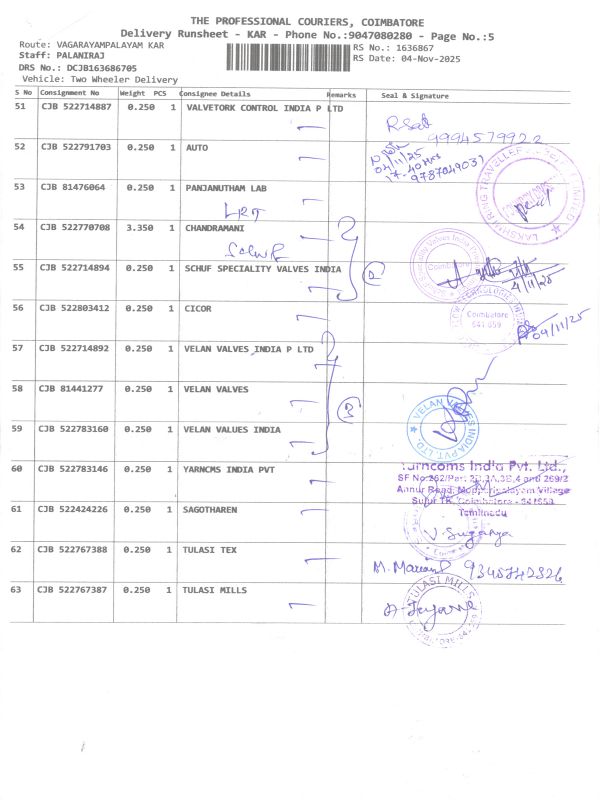 THE PROFESSIONAL COURIERS, COIMBATORE
Delivery Runsheet - KAR - Phone No.:9047080280 - Page No.:5
Route: VAGARAYAMPALAYAM KAR
RS No.: 1636867
Staff: PALANIRAJ
RS Date: 04-Nov-2025
DRS No.: DCJB163686705
Vehicle: Two Wheeler Delivery
S No Consignment No Weight PCS Consignee Details Remarks Seal & Signature
51 CJB 522714887 0.250 1 VALVETORK CONTROL INDIA P LTD
9994579922
52 CJB 522791703 0.250 1 AUTO
04/11/25
17-40 Hrs
9787049031
53 CJB 81476064 0.250 1 PANJANUTHAM LAB
54 CJB 522770708 3.350 1 CHANDRAMANI
55 CJB 522714894 0.250 1 SCHUF SPECIALITY VALVES INDIA
4/11/25
56 CJB 522803412 0.250 1 CICOR
Coimbatore
641 659
04/11/25
57 CJB 522714892 0.250 1 VELAN VALVES INDIA P LTD
58 CJB 81441277 0.250 1 VELAN VALVES
VELAN VALVES INDIA PVT. LTD.
59 CJB 522783160 0.250 1 VELAN VALUES INDIA
60 CJB 522783146 0.250 1 YARNCMS INDIA PVT
Yarncoms India Pvt. Ltd.,
Annur Road, Mopperipalayam Village
Sulur TK, Coimbatore - 641659
Tamilnadu
61 CJB 522424226 0.250 1 SAGOTHAREN
V. Suganya
62 CJB 522767388 0.250 1 TULASI TEX
63 CJB 522767387 0.250 1 TULASI MILLS
TULASI MILLS